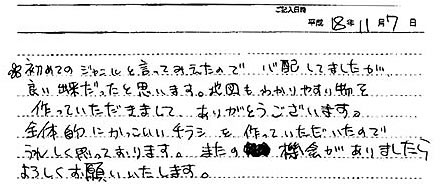 ご記入日時
平成 18年 11月 7日
※初めてのジャンルと言ってみえたので 心配してましたが
良い出来だったと思います。地図もわかりやすい物を
作っていただきまして、ありがとうございます。
全体的にかっこいいチラシを作っていただいたので
うれしく思っております。またの 機会がありましたら
よろしくお願いいたします。